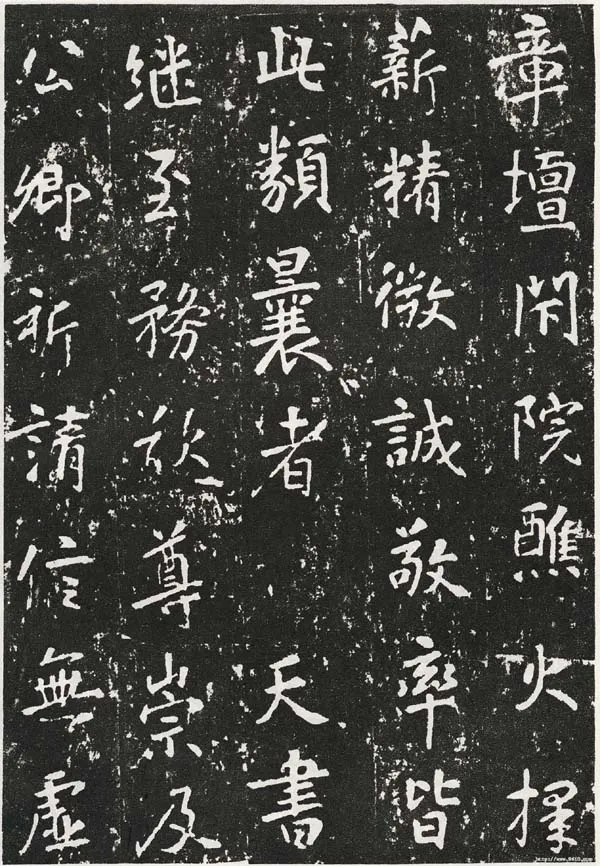 章壇閑院醮火揉
薪精微誠敬率皆
此類曩者 天書
継至務欲尊崇及
公卿祈請信無虛